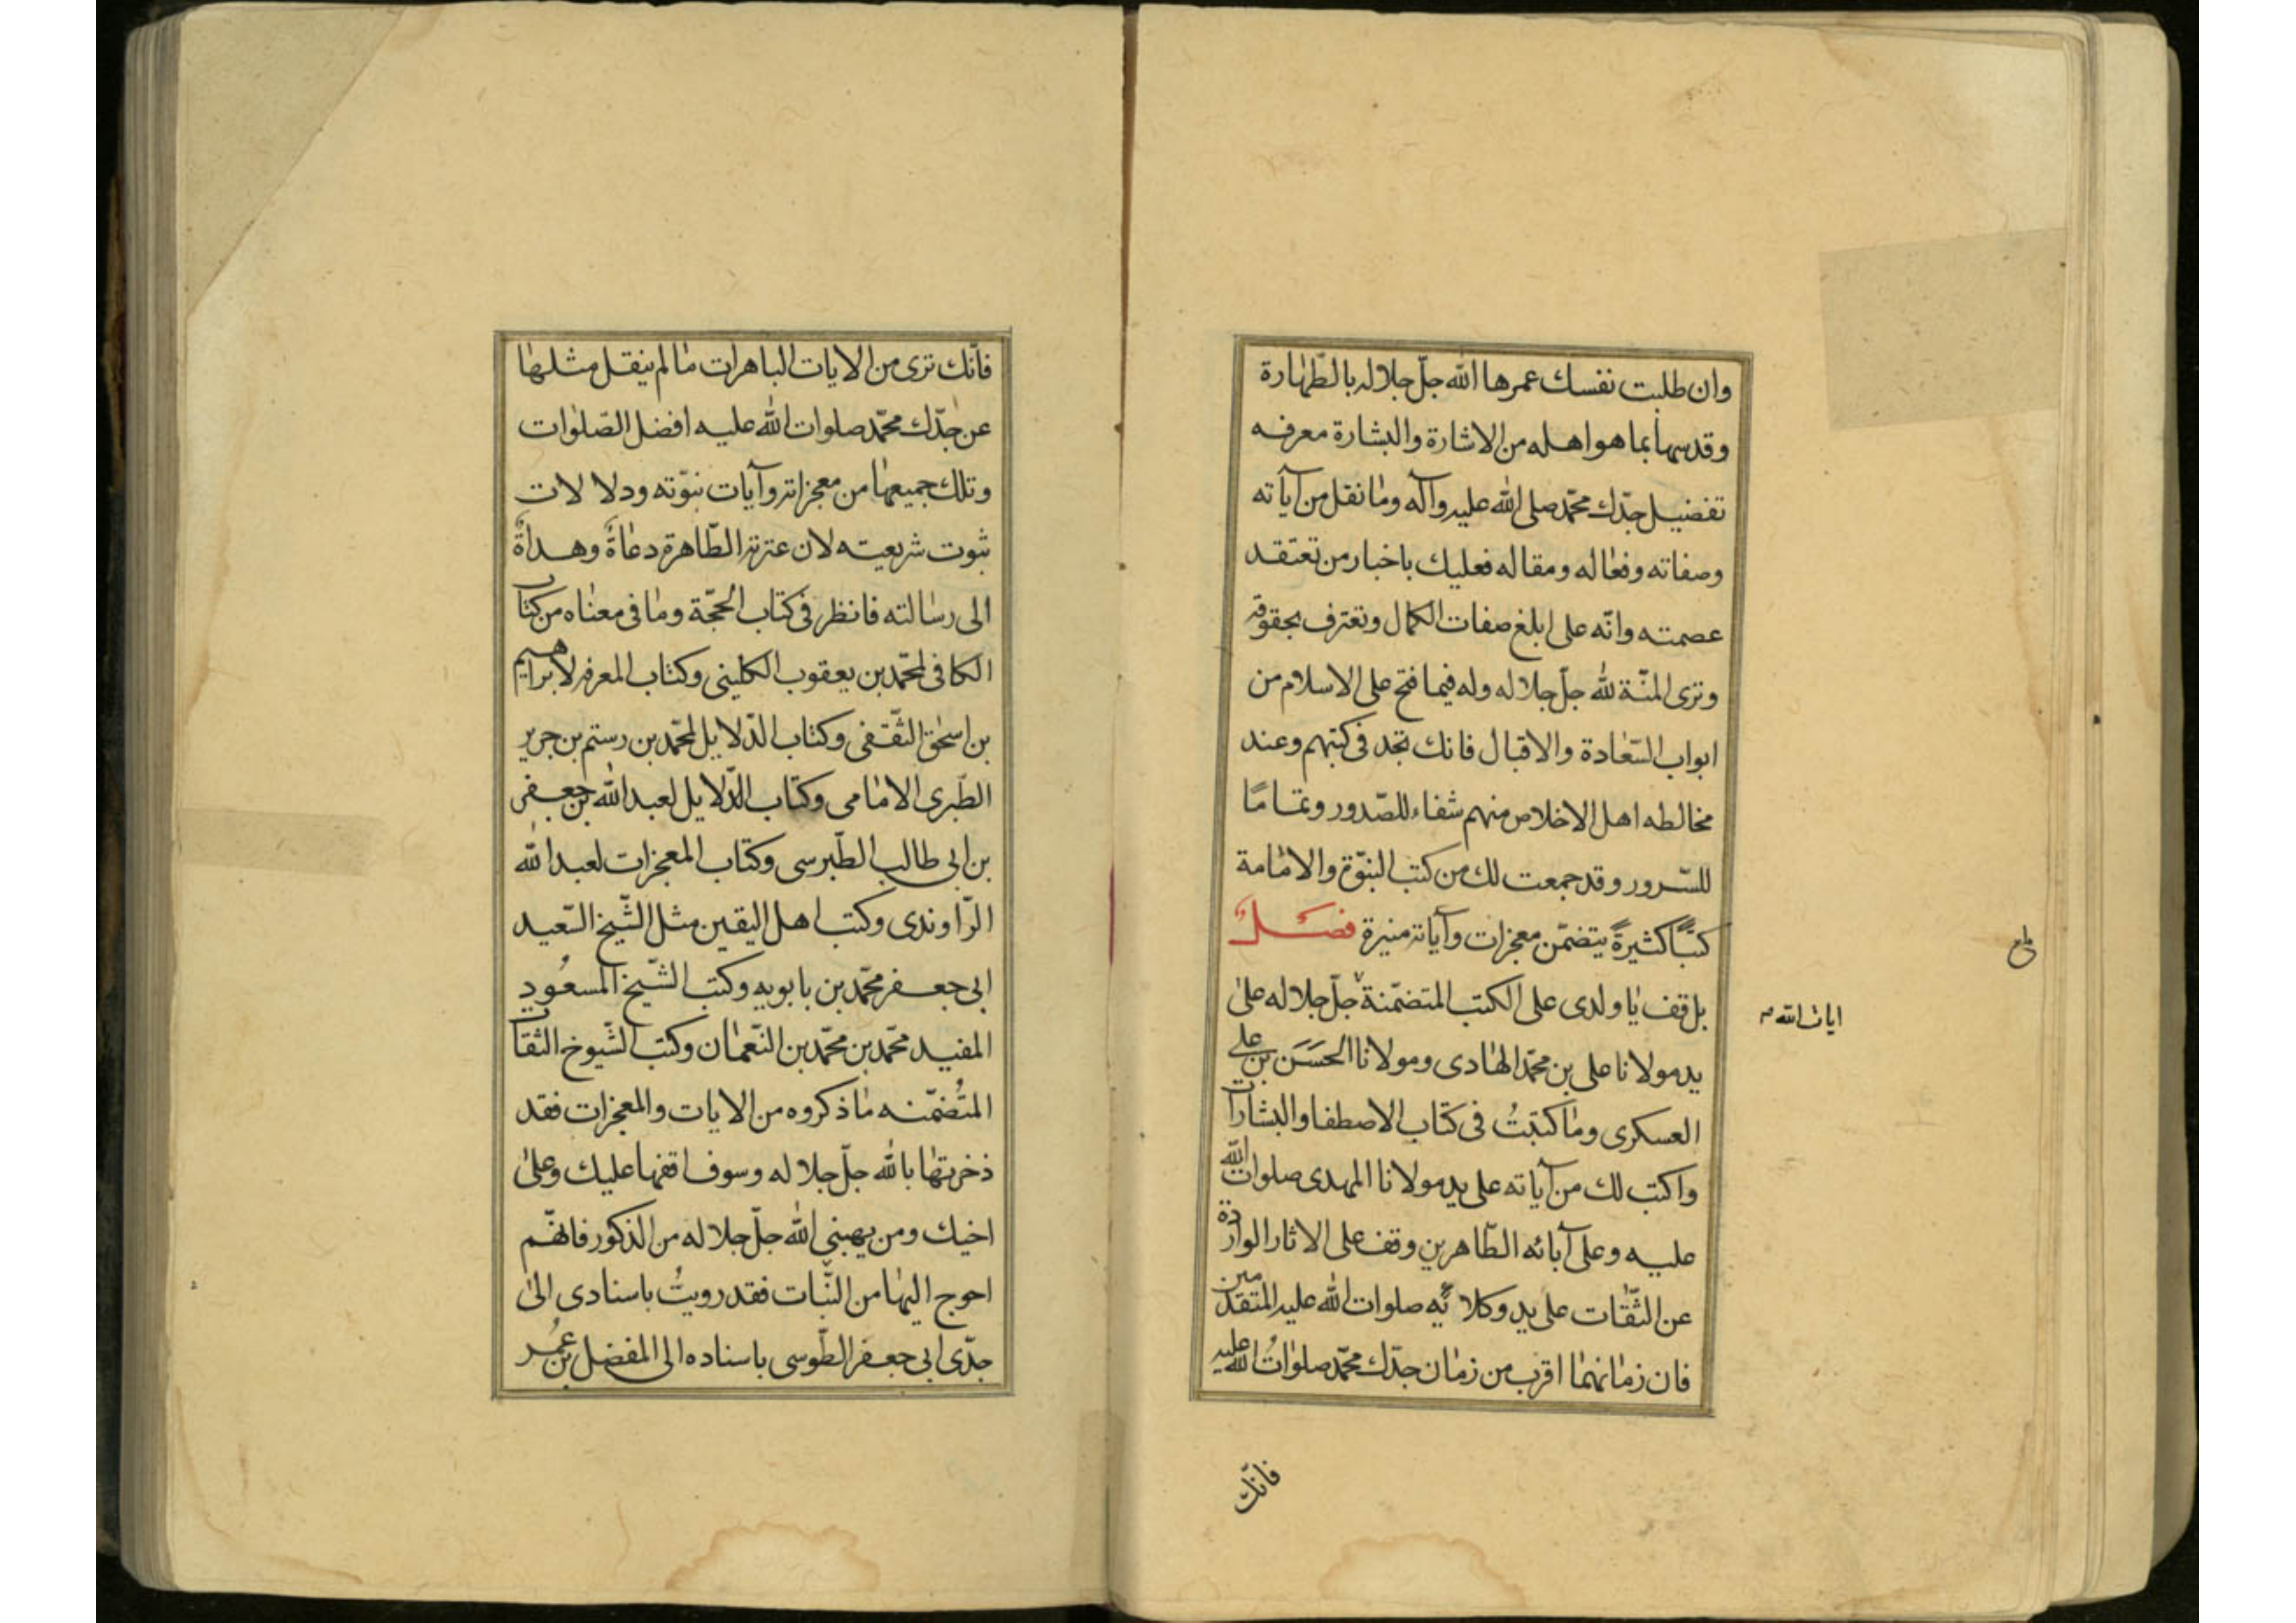 وان طلبت نفسك عمرها الله جلّ جلاله بالطّهارة
وقدسها بما هو اهله من الاشارة والبشارة معرفه
تفضيل جدّك محمّد صلى الله عليه وآله وما نقل من آياته
وصفاته وفعاله ومقاله فعليك باخبار من تعتقد
عصمته وانّه على ابلغ صفات الكمال وتعترف بحقوقه
وترى المنّة لله جلّ جلاله وله فيما فتح على الاسلام من
ابواب السّعادة والاقبال فانك تجد فى كتبهم وعند
مخالطه اهل الاخلاص منهم شفاء للصّدور وتماما
للسّرور وقد جمعت لك من كتب النبوّة والامامة
كتبًا كثيرةً يتضمّن معجزات وآياته منيرة فصل
بل قف يا ولدى على الكتب المتضمّنة جلّ جلاله على
ايات الله
يد مولانا على بن محمّد الهادى ومولانا الحسن بن على
العسكرى وما كتبتُ فى كتاب الاصطفا والبشارات
واكتب لك من آياته على يد مولانا المهدى صلوات الله
عليه وعلى آبائه الطّاهرين وقف على الاثار الواردة
عن الثّقات على يد وكلائه صلوات الله عليه المتقدمين
فان زمانهما اقرب من زمان جدّك محمّد صلوات الله عليه
فانّك
فانّك ترى من الايات الباهرات ما لم ينقل مثلها
عن جدّك محمّد صلوات الله عليه افضل الصّلوات
وتلك جميعها من معجزاته وآيات نبوّته ودلالات
ثبوت شريعته لان عترته الطّاهرة دعاةٌ وهداةٌ
الى رسالته فانظر فى كتاب الحجّة وما فى معناه من كتاب
الكافى لمحمّد بن يعقوب الكلينى وكتاب المعرفه لابراهيم
بن اسحق الثّقفى وكتاب الدّلايل لمحمّد بن رستم بن جرير
الطّبرى الامامى وكتاب الدّلايل لعبد الله بن جعفر
بن ابى طالب الطّبرسى وكتاب المعجزات لعبد الله
الرّاوندى وكتب اهل اليقين مثل الشّيخ السّعيد
ابى جعفر محمّد بن بابويه وكتب الشّيخ المسعُود
المفيد محمّد بن محمّد بن النّعمان وكتب الشّيوخ الثقات
المتُضمّنه ما ذكروه من الايات والمعجزات فقد
ذخرتها بالله جلّ جلاله وسوف اقفها عليك وعلى
اخيك ومن يهبنى الله جلّ جلاله من الذكور فانهّم
احوج اليها من البّنات فقد رويتُ باسنادى الى
جدّى ابى جعفر الطّوسى باسناده الى المفضل بن عُمر